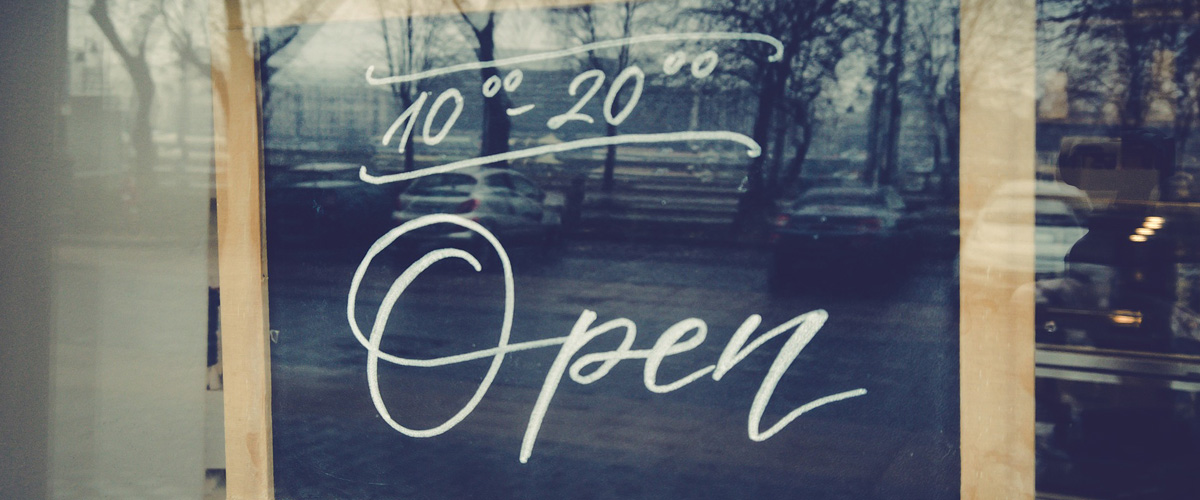 10⁰⁰ - 20⁰⁰
Open